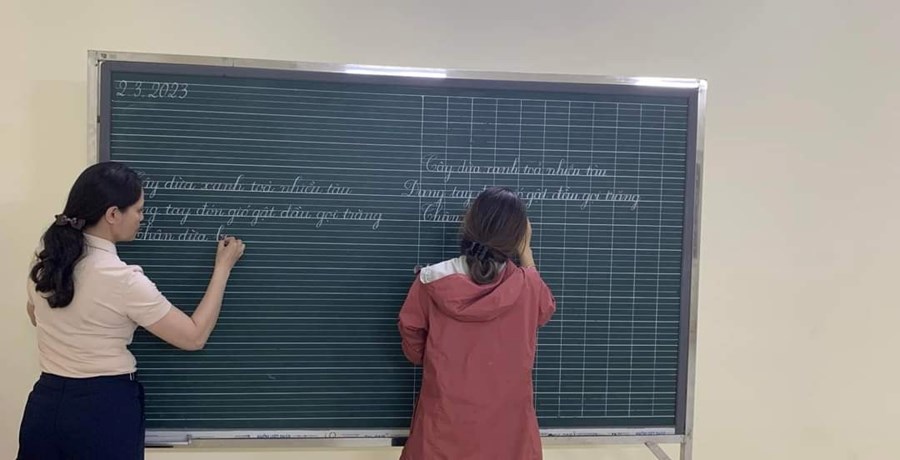 2.3.2023
ây dừa xanh toả nhiều tàu
ng tay đón gió gật đầu gọi trăng
Thân dừa b
Cây dừa xanh toả nhiều tàu
Dang tay gió gật đầu gọi trăng
Thân